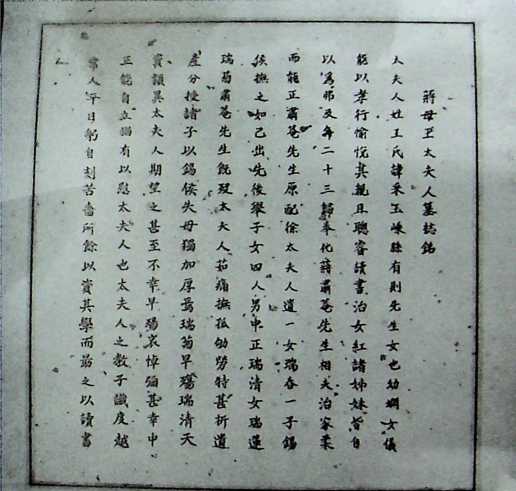 蔣母王太夫人墓誌銘
太夫人姓王氏諱采玉嵊縣有則先生女也幼嫻女儀
能以孝行愉悅其親且聰睿讀書治女紅諸姊妹皆自
以為弗及年二十三歸奉化蔣肅菴先生相夫治家柔
而能正肅菴先生原配徐太夫人遺一女瑞春一子錫
侯撫之如己出先後舉子女四人男中正瑞清女瑞蓮
瑞菊肅菴先生既歿太夫人茹痛撫孤劬勞特甚析遺
產分授諸子以錫侯失母獨加厚焉瑞菊早殤瑞清天
資穎異太夫人期望之甚至不幸早殤哀悼彌甚幸中
正能自立猶有以慰太夫人也太夫人之教子識度越
常人平日躬自刻苦嗇所餘以資其學而勗之以讀書